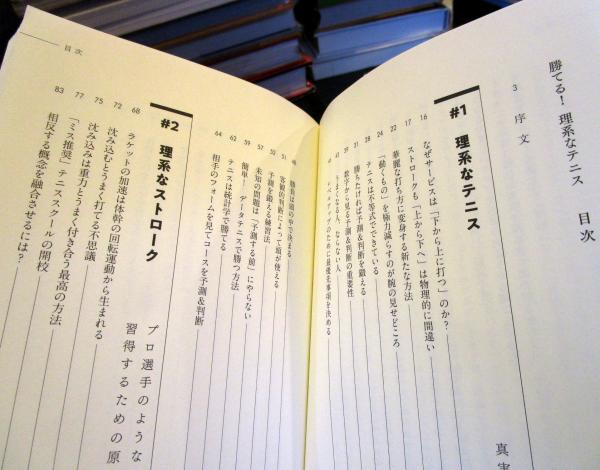 勝てる! 理系なテニス 目次
3 序文
#1 理系なテニス
真実
16 なぜサービスは「下から上に打つ」のか?
17 ストロークも「上から下へ」は物理的に間違い
22 華麗な打ち方に変身する新たな方法
24 「動くもの」を極力減らすのが腕の見せどころ
28 テニスは不等式でできている
31 勝ちたければ予測&判断を鍛える
39 数字から見る予測&判断の重要性
うまくなる人、ならない人
レベルアップのために最優先事項を決める
48 勝負は頭の中で決まる
51 客観的判断によって頭が使える
50 予測を鍛える練習法
57 未知の問題は「予測する前」にやらない
59 簡単! データテニスで勝つ方法
62 テニスは統計学で勝てる
64 相手のフォームを見てコースを予測&判断
#2 理系なストローク
プロ選手のような
習得するための原
68 ラケットの加速は体幹の回転運動から生まれる
72 沈み込むとうまく打てる不思議
75 沈み込みは重力とうまく付き合う最高の方法
77 「ミス推奨」テニススクールの開校
83 相反する概念を融合させるには?
目次